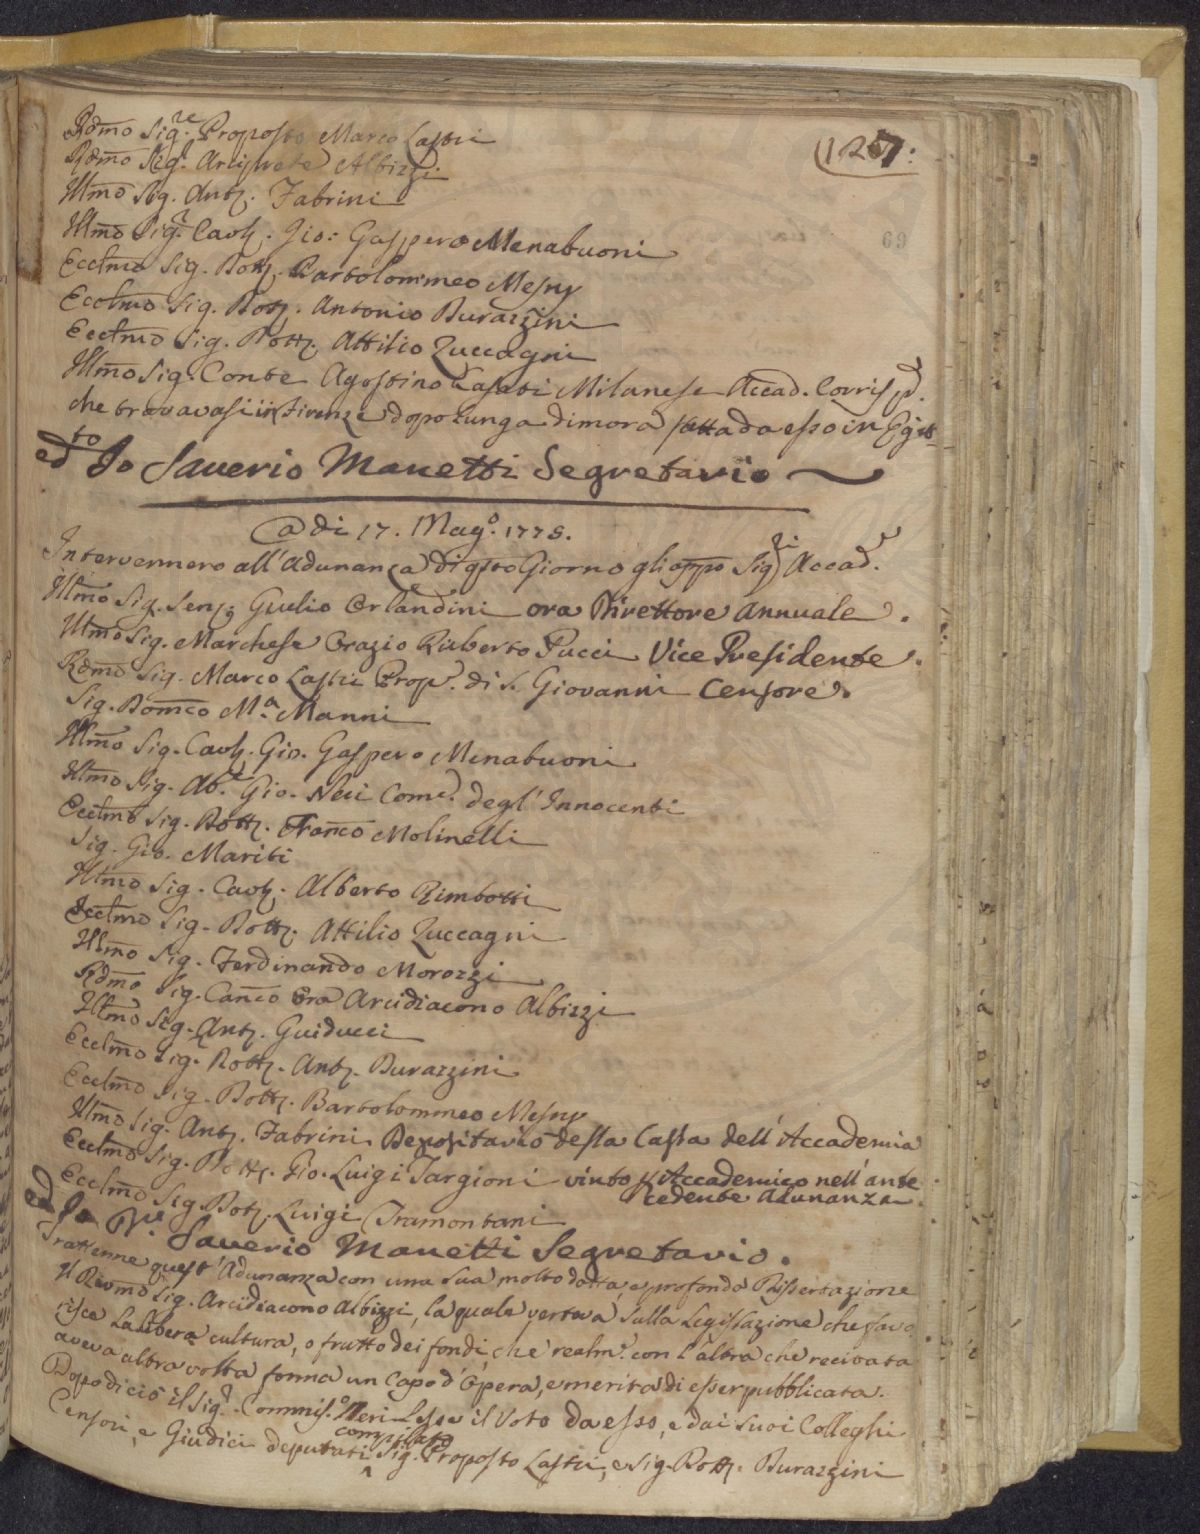 (127:
69
Rdmo Sig.re Proposto Marco Lastri
Rdmo Sigr. Arciprete Albizzi
Illmo Sig. Ant. Fabrini
Illmo Sig.r Cavr. Gio: Gaspero Menabuoni
Ecclmo Sig. Dottr. Bartolommeo Mesny
Ecclmo Sig. Dottr. Antonio Durazzini
Ecclmo Sig. Dottr. Attilio Zuccagni
Illmo Sig. Conte Agostino Casati Milanese Accad. Corrisp.
che trovavasi in Firenze dopo lunga dimora fatta da esso in Egit
to
ed Io Saverio Manetti Segretario
Adi 17. Mago. 1775.
Intervennero all'Adunanza di qsto Giorno gli appo Sigri Accad.
Illmo Sig. Sen. Giulio Orlandini ora Direttore Annuale.
Illmo Sig. Marchese Orazio Ruberto Pucci Vice Presidente.
Rdmo Sig. Marco Lastri Propo. di S. Giovanni Censore.
Sig. Domco Ma. Manni
Illmo Sig. Cavr. Gio. Gaspero Menabuoni
Illmo Sig. Abe. Gio. Neri Come. degl'Innocenti
Ecclmo Sig. Dottr. Franco Molinelli
Sig. Gio. Mariti
Illmo Sig. Cavr. Alberto Rimbotti
Ecclmo Sig. Dottr. Attilio Zuccagni
Illmo Sig. Ferdinando Morozzi
Rdmo Sig. Canco ora Arcidiacono Albizzi
Illmo Sig. Ant. Guiducci
Ecclmo Sig. Dottr. Ant. Durazzini
Ecclmo Sig. Dottr. Bartolommeo Mesny
Illmo Sig. Ant. Fabrini Depositario della Cassa dell'Accademia
Ecclmo Sig. Dottr. Gio. Luigi Targioni vinto p Accademico nell'ante
cedente Adunanza
Ecclmo Sig Dott. Luigi Tramontani
ed Io Dre. Saverio Manetti Segretario.
Trattenne quest'Adunanza con una sua molto dotta, e profonda Dissertazione
Il Revmo Sig. Arcidiacono Albizzi, la quale verteva sulla Legislazione che favo
risce la libera cultura, o frutto dei fondi, che realmte. con l'altra che recitata
aveva altra volta forma un Capo d'Opera, e merita di esser pubblicata.
Dopo di ciò il Sigr. Commiso. Neri Lesse il Voto da esso, e dai suoi Colleghi
compilato
Censori, e Giudici deputati Sig. Proposto Lastri, e Sig. Dottr. Durazzini